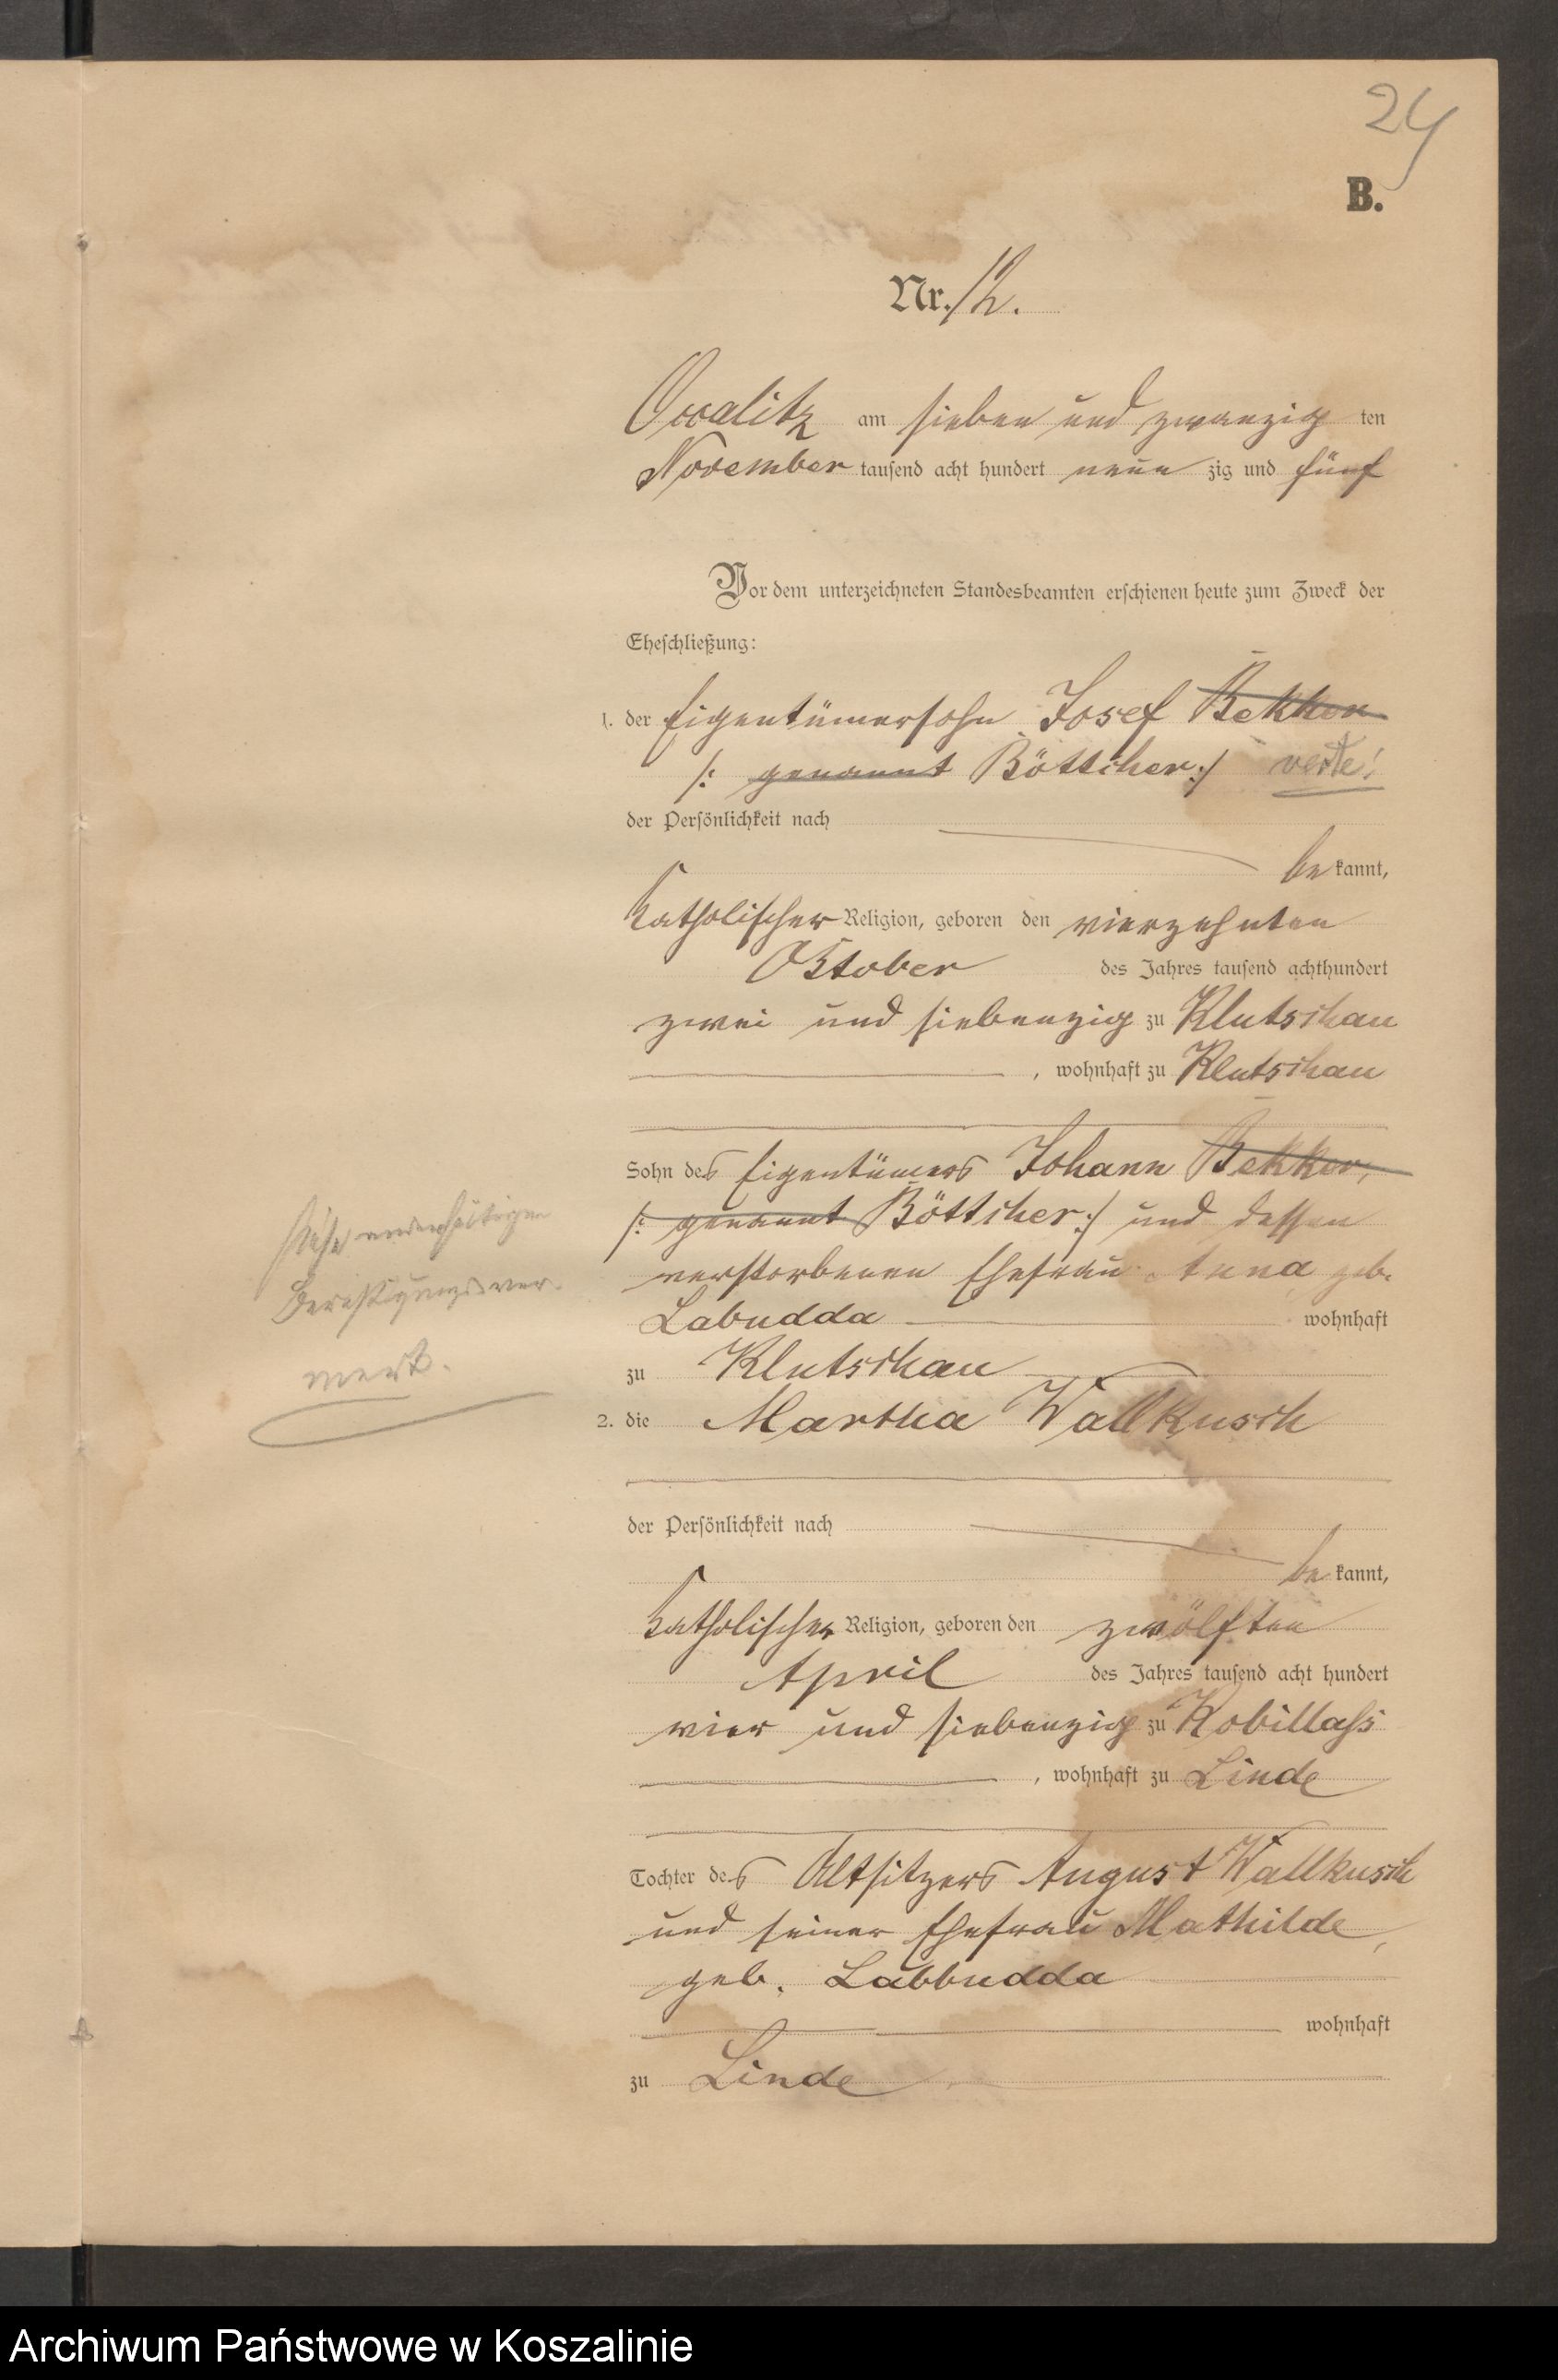 24
B.
Nr. 12.
Owalitz am sieben und zwanzig ten
November tausend acht hundert neun zig und fünf
Vor dem unterzeichneten Standesbeamten erschienen heute zum Zweck der
Eheschließung:
1. der Eigentümersohn Josef Bekker
/: genannt Böttcher :/ verte!
der Persönlichkeit nach
be kannt,
katholischer Religion, geboren den vierzehnten
Oktober des Jahres tausend achthundert
zwei und siebenzig zu Klutschau
, wohnhaft zu Klutschau
Sohn des Eigentümers Johann Bekker,
/: genannt Böttcher :/ und dessen
verstorbenen Ehefrau Anna geb.
Labudda wohnhaft
zu Klutschau
Siehe umseitigen
Berichtigungsver-
merk.
2. die Martha Wallkusch
der Persönlichkeit nach
be kannt,
katholischer Religion, geboren den zwölften
April des Jahres tausend acht hundert
vier und siebenzig zu Kobillaß
, wohnhaft zu Linde
Tochter des Altsitzers August Wallkusch
und seiner Ehefrau Mathilde,
geb. Labbudda
wohnhaft
zu Linde
Archiwum Państwowe w Koszalinie